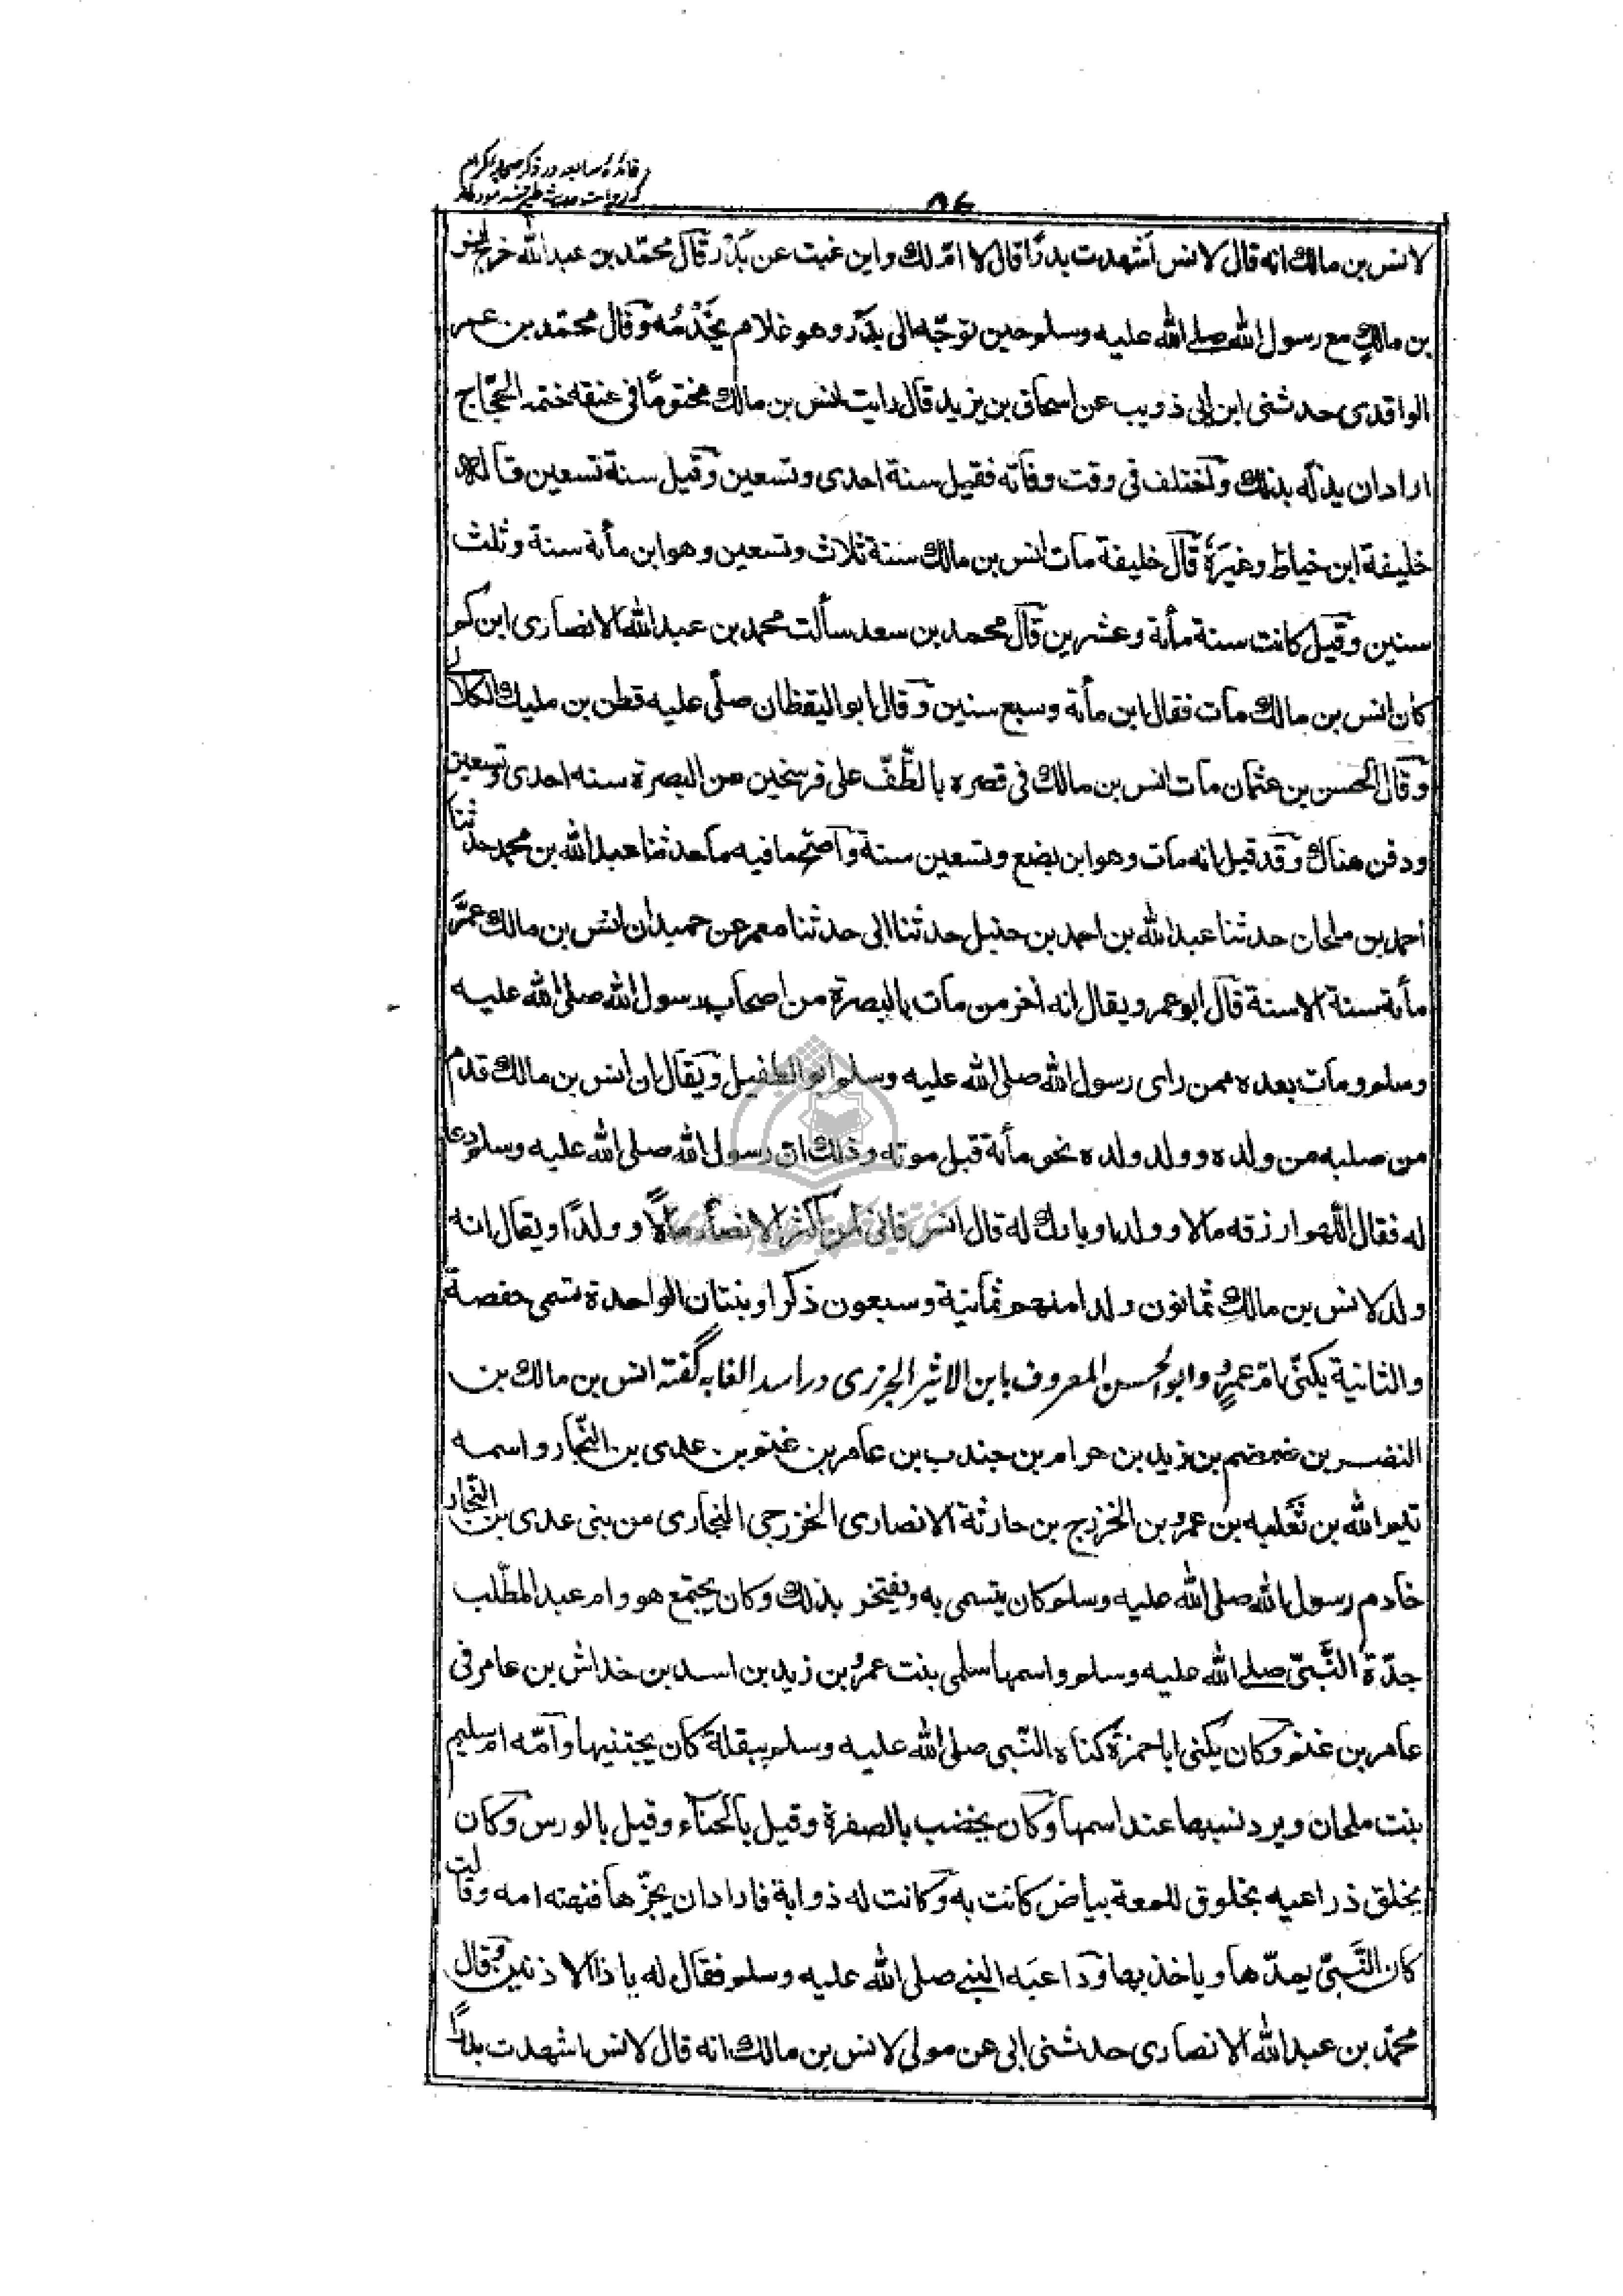 فائدهٔ سابعه در ذکر صحابهٔ کرام
که روایت حدیث طیر
۵۶
لانس بن مالك انه قال لانس أشهدت بدرًا قال لا امّ لك واين غبت عن بَدْر قال محمّد بن عبد الله خرج انس
بن مالكٍ مع رسول الله صلى الله عليه وسلم حين توجّه الى بَدْر وهو غلام يَخْدُمُه وقال محمّد بن عمر
الواقدى حدثنى ابن ابى ذويب عن اسحاق بن يزيد قال رايت انس بن مالك مختومًا فى عنقه ختمه الحجّاج
اراد ان يذلّه بذلك واختلف فى وقت وفاته فقيل سنة احدى وتسعين وقيل سنة تسعين قاله
خليفة ابن خياط وغيرَهُ قال خليفة مات انس بن مالك سنة ثلاث وتسعين وهو ابن مأنة سنة وثلث
سنين وقيل كانت سنة مأنة وعشرين قال محمد بن سعد سألت محمد بن عبد الله الانصارى ابن كم
كان انس بن مالك مات فقال ابن مأنة وسبع سنين وقال ابو اليقظان صلّى عليه قطن بن مليك الكلابى
وقال الحسن بن عثمان مات انس بن مالك فى قصره بالطّفّ على فرسخين من البصرة سنه احدى وتسعين
ودفن هناك وقد قيل انه مات وهو ابن بضع وتسعين سنة واصحّ ما فيه ما حدثنا عبد الله بن محمد حدثنا
احمد بن ملحان حدثنا عبد الله بن احمد بن حنبل حدثنا ابى حدثنا معمر عن حميد ان انس بن مالك عمَّر
مأنة سنة الا سنة قال ابو عمر ويقال انه آخر من مات بالبصرة من اصحاب رسول الله صلى الله عليه
وسلم ومات بعده ممن راى رسول الله صلى الله عليه وسلم ابو الطفيل ويقال ان انس بن مالك قدم
من صلبه من ولده وولد ولده نحو مأنة قبل موته وذلك ان رسول الله صلى الله عليه وسلم دعا
له فقال اللهم ارزقه مالا وولدا وبارك له قال انس فانى لمن اكثر الانصار مالًا وولدًا ويقال انه
ولد لانس بن مالك ثمانون ولدا منهم ثمانية وسبعون ذكرا وبنتان الواحدة تسمى حفصة
والثانية يكنّى امّ عمرو وابو الحسن المعروف بابن الاثير الجزرى در اسد الغابه گفته انس بن مالك بن
النضر بن ضمضم بن زيد بن حرام بن جندب بن عامر بن غنم بن عدى بن النّجار واسمه
تيم الله بن ثَعلبه بن عمرو بن الخزرج بن حارثة الانصارى الخزرجى النجارى من بنى عدى بن النجار
خادم رسول الله صلى الله عليه وسلم كان يتسمى به ويفتخر بذلك وكان يجتمع هو وام عبد المطّلب
جدّة النّبىّ صلى الله عليه وسلم واسمها سلمى بنت عمرو بن زيد بن اسد بن خداش بن عامر فى
عامر بن غنم وكان يكنى ابا حمزة كناه النّبى صلى الله عليه وسلم ببقلة كان يجتنيها وامّه ام سليم
بنت ملحان ويرد نسبها عند اسمها وكان يخضب بالصفرة وقيل بالحنّاء وقيل بالورس وكان
يخلق ذراعيه بخلوق للمعة بياض كانت به وكانت له ذوابة فاراد ان يجزّها فنهته امه وقالت
كان النَّبىّ يمدّها وياخذ بها وداعبه النبى صلى الله عليه وسلم فقال له يا ذا الاذنين وقال
محمّد بن عبد الله الانصارى حدثنى ابى عن مولى لانس بن مالك انه قال لانس اشهدت بدرًا